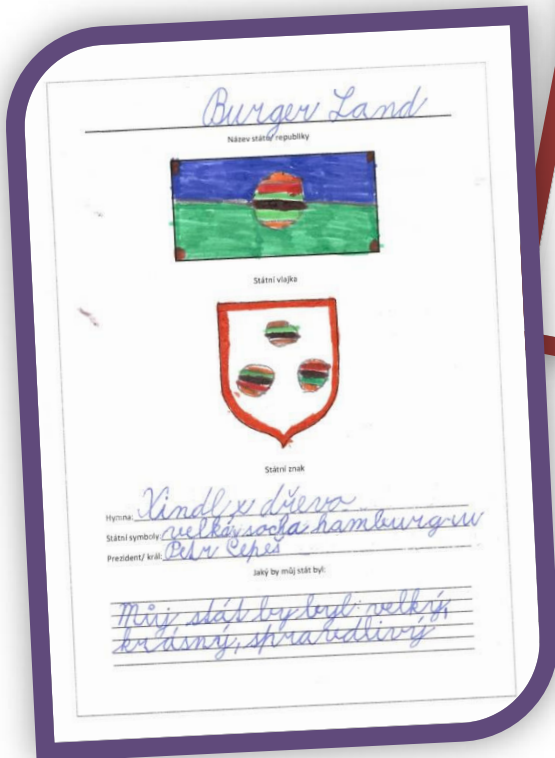 Burger Land
Název státu/ republiky
Státní vlajka
Státní znak
Hymna: Xindl x dřevo
Státní symboly: velká socha hamburgru
Prezident/ král: Petr Cepeš
Jaký by můj stát byl:
Můj stát by byl: velký,
krásný, spravedlivý